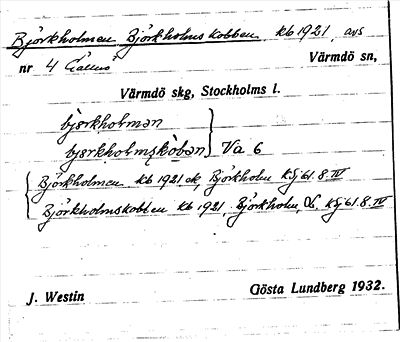 Björkholmen Björkholmskobben kb 1921 avs
nr 4 Värmdö sn,
Värmdö skg, Stockholms l.
bjørkholmən
bjørkholmskåbən } Va 6
Björkholmen kb 1921 ek, Björkholm KSj 61.8.IV
Björkholmskobben kb 1921, Björkholm, KSj 61.8.IV
J. Westin Gösta Lundberg 1932.